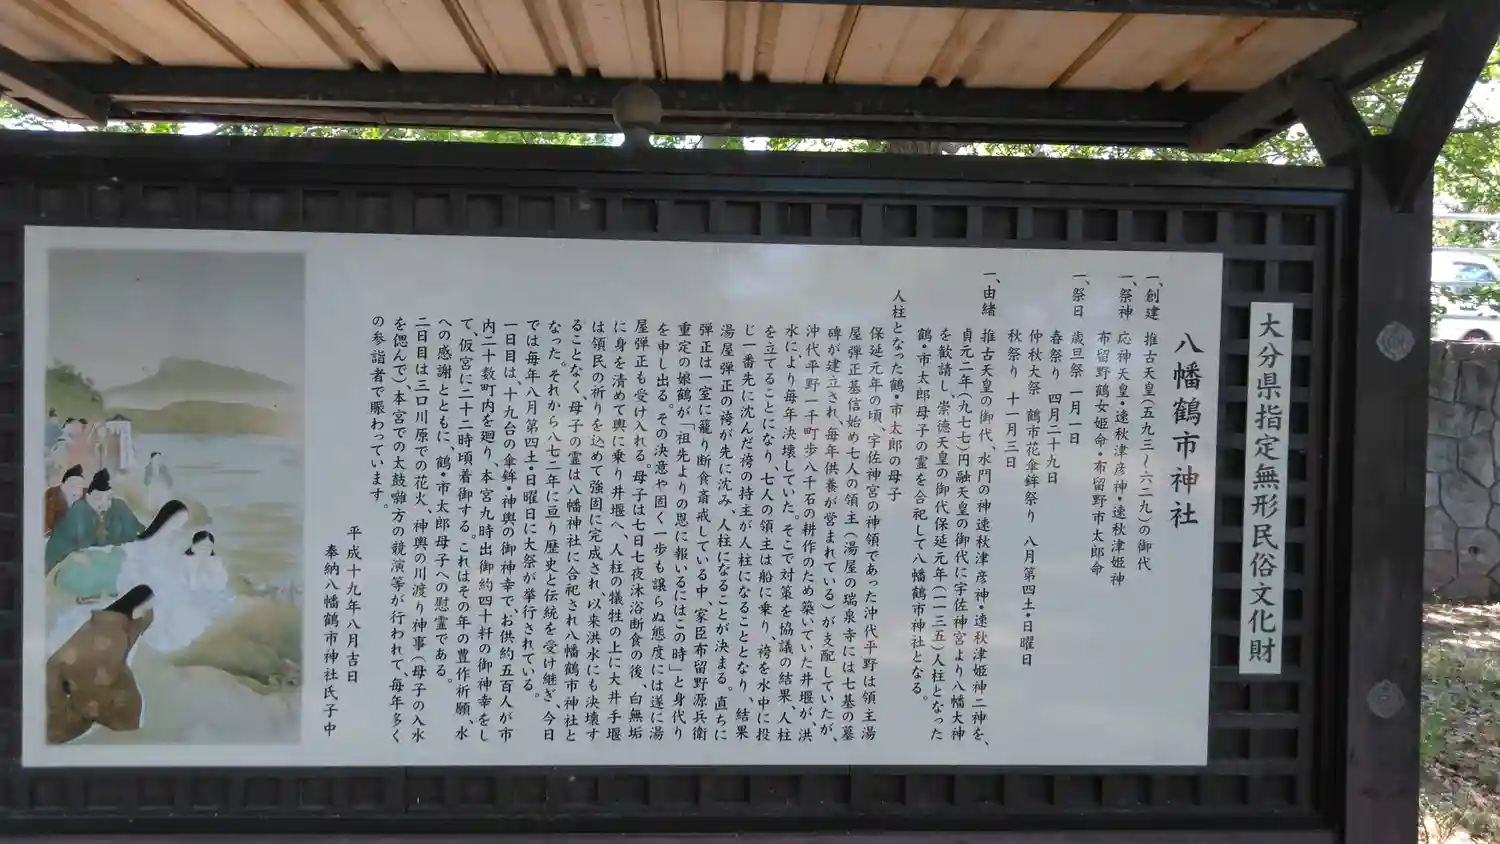 大分県指定無形民俗文化財
八幡鶴市神社
一、創建 推古天皇(五九三~六二九)の御代
一、祭神 応神天皇・速秋津彦神・速秋津姫神
布留野鶴女姫命・布留野市太郎命
一、祭日 歳旦祭 一月一日
春祭り 四月二十九日
仲秋大祭 鶴市花傘鉾祭り 八月第四土・日曜日
秋祭り 十一月三日
一、由緒 推古天皇の御代、水門の神速秋津彦神・速秋津姫神二神を、
貞元二年(九七七)円融天皇の御代に宇佐神宮より八幡大神
を歓請し、崇徳天皇の御代保延元年(一一三五)人柱となった
鶴・市太郎母子の霊を合祀して八幡鶴市神社となる。
人柱となった鶴・市太郎の母子
保延元年の頃、宇佐神宮の神領であった沖代平野は領主湯
屋弾正基信始め七人の領主(湯屋の瑞泉寺には七基の墓
碑が建立され、毎年供養が営まれている)が支配していたが、
沖代平野一千町歩八千石の耕作のため築いていた井堰が、洪
水により毎年決壊していた。そこで対策を協議の結果、人柱
を立てることになり、七人の領主は船に乗り、袴を水中に投
じ一番先に沈んだ袴の持主が人柱になることとなり、結果
湯屋弾正の袴が先に沈み、人柱になることが決まる。直ちに
弾正は一室に籠り断食斎戒している中、家臣布留野源兵衛
重定の娘鶴が「祖先よりの恩に報いるにはこの時」と身代り
を申し出る。その決意や固く一歩も譲らぬ態度には遂に湯
屋弾正も受け入れる。母子は七日七夜沐浴断食の後、白無垢
に身を清めて輿に乗り井堰へ、人柱の犠牲の上に大井手堰
は領民の祈りを込めて強固に完成され、以来洪水にも決壊す
ることなく、母子の霊は八幡神社に合祀され八幡鶴市神社と
なった。それから八七二年に亘り歴史と伝統を受け継ぎ、今日
では毎年八月第四土・日曜日に大祭が挙行されている。
一日目は、十九台の傘鉾・神輿の御神幸で、お供約五百人が市
内二十数町内を廻り、本宮九時出御約四十粁の御神幸をし
て、仮宮に二十二時頃着御する。これはその年の豊作祈願、水
への感謝とともに、鶴・市太郎母子への慰霊である。
二日目は三口川原での花火、神輿の川渡り神事(母子の入水
を偲んで)、本宮での太鼓囃方の競演等が行われて、毎年多く
の参詣者で賑わっています。
平成十九年八月吉日
奉納八幡鶴市神社氏子中